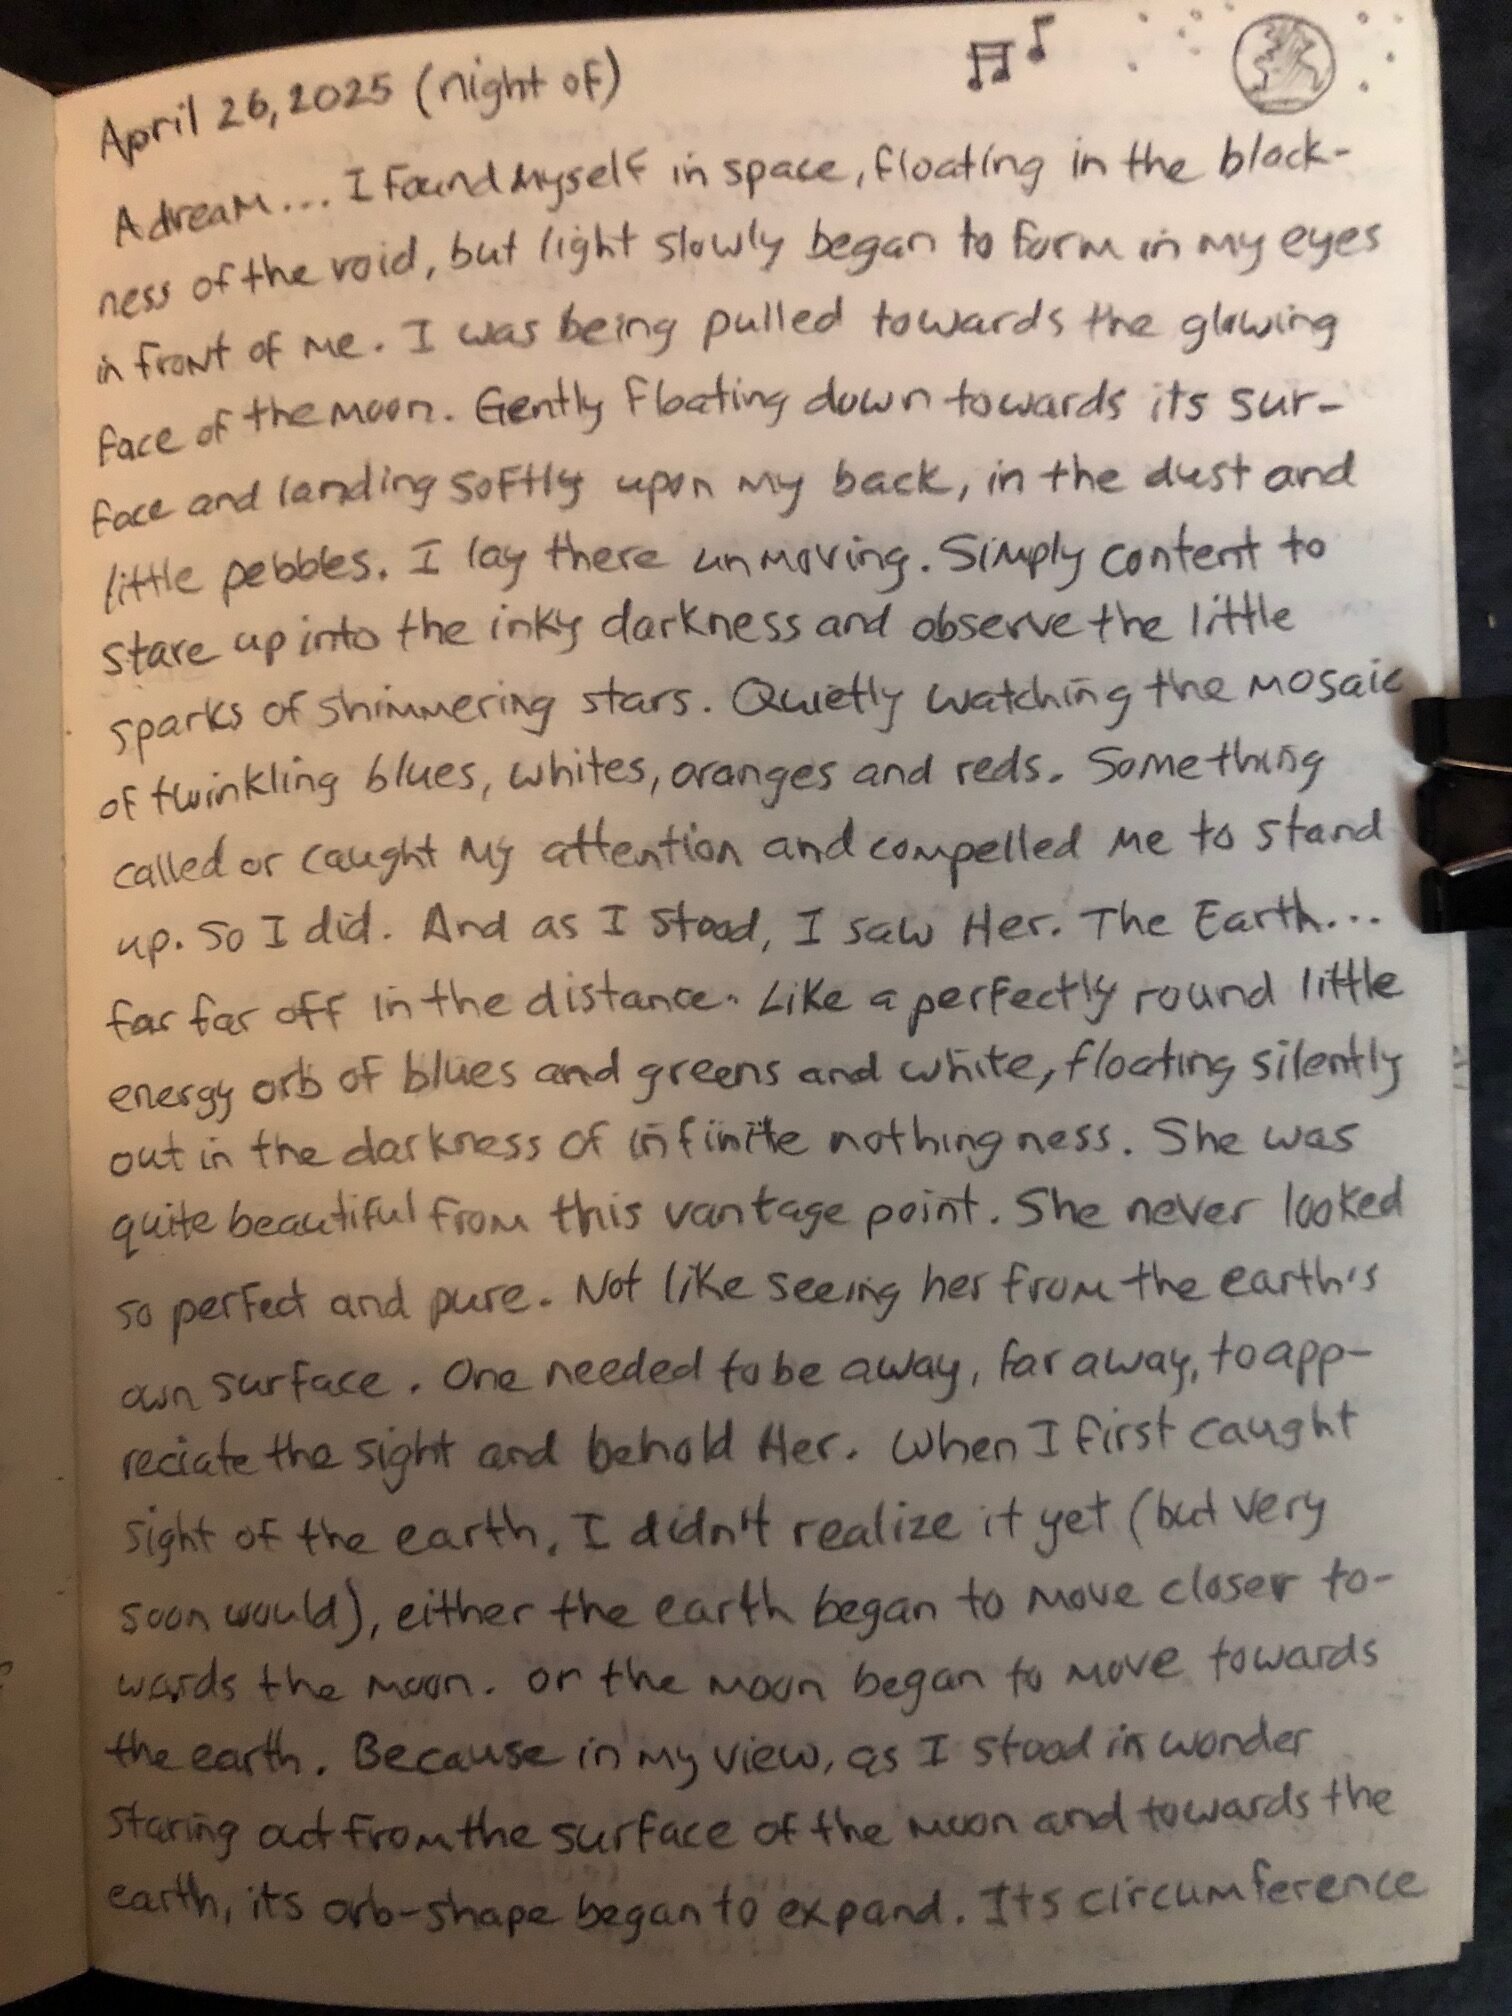 April 26, 2025 (night of)
A dream... I found myself in space, floating in the black-
ness of the void, but light slowly began to form in my eyes
in front of me. I was being pulled towards the glowing
face of the moon. Gently floating down towards its sur-
face and landing softly upon my back, in the dust and
little pebbles. I lay there unmoving. Simply content to
stare up into the inky darkness and observe the little
sparks of shimmering stars. Quietly watching the mosaic
of twinkling blues, whites, oranges and reds. Something
called or caught my attention and compelled me to stand
up. So I did. And as I stood, I saw Her. The Earth...
far far off in the distance. Like a perfectly round little
energy orb of blues and greens and white, floating silently
out in the darkness of infinite nothingness. She was
quite beautiful from this vantage point. She never looked
so perfect and pure. Not like seeing her from the earth's
own surface. One needed to be away, far away, to app-
reciate the sight and behold Her. When I first caught
sight of the earth, I didn't realize it yet (but very
soon would), either the earth began to move closer to-
wards the moon. or the moon began to move towards
the earth. Because in my view, as I stood in wonder
staring out from the surface of the moon and towards the
earth, its orb-shape began to expand. Its circumference